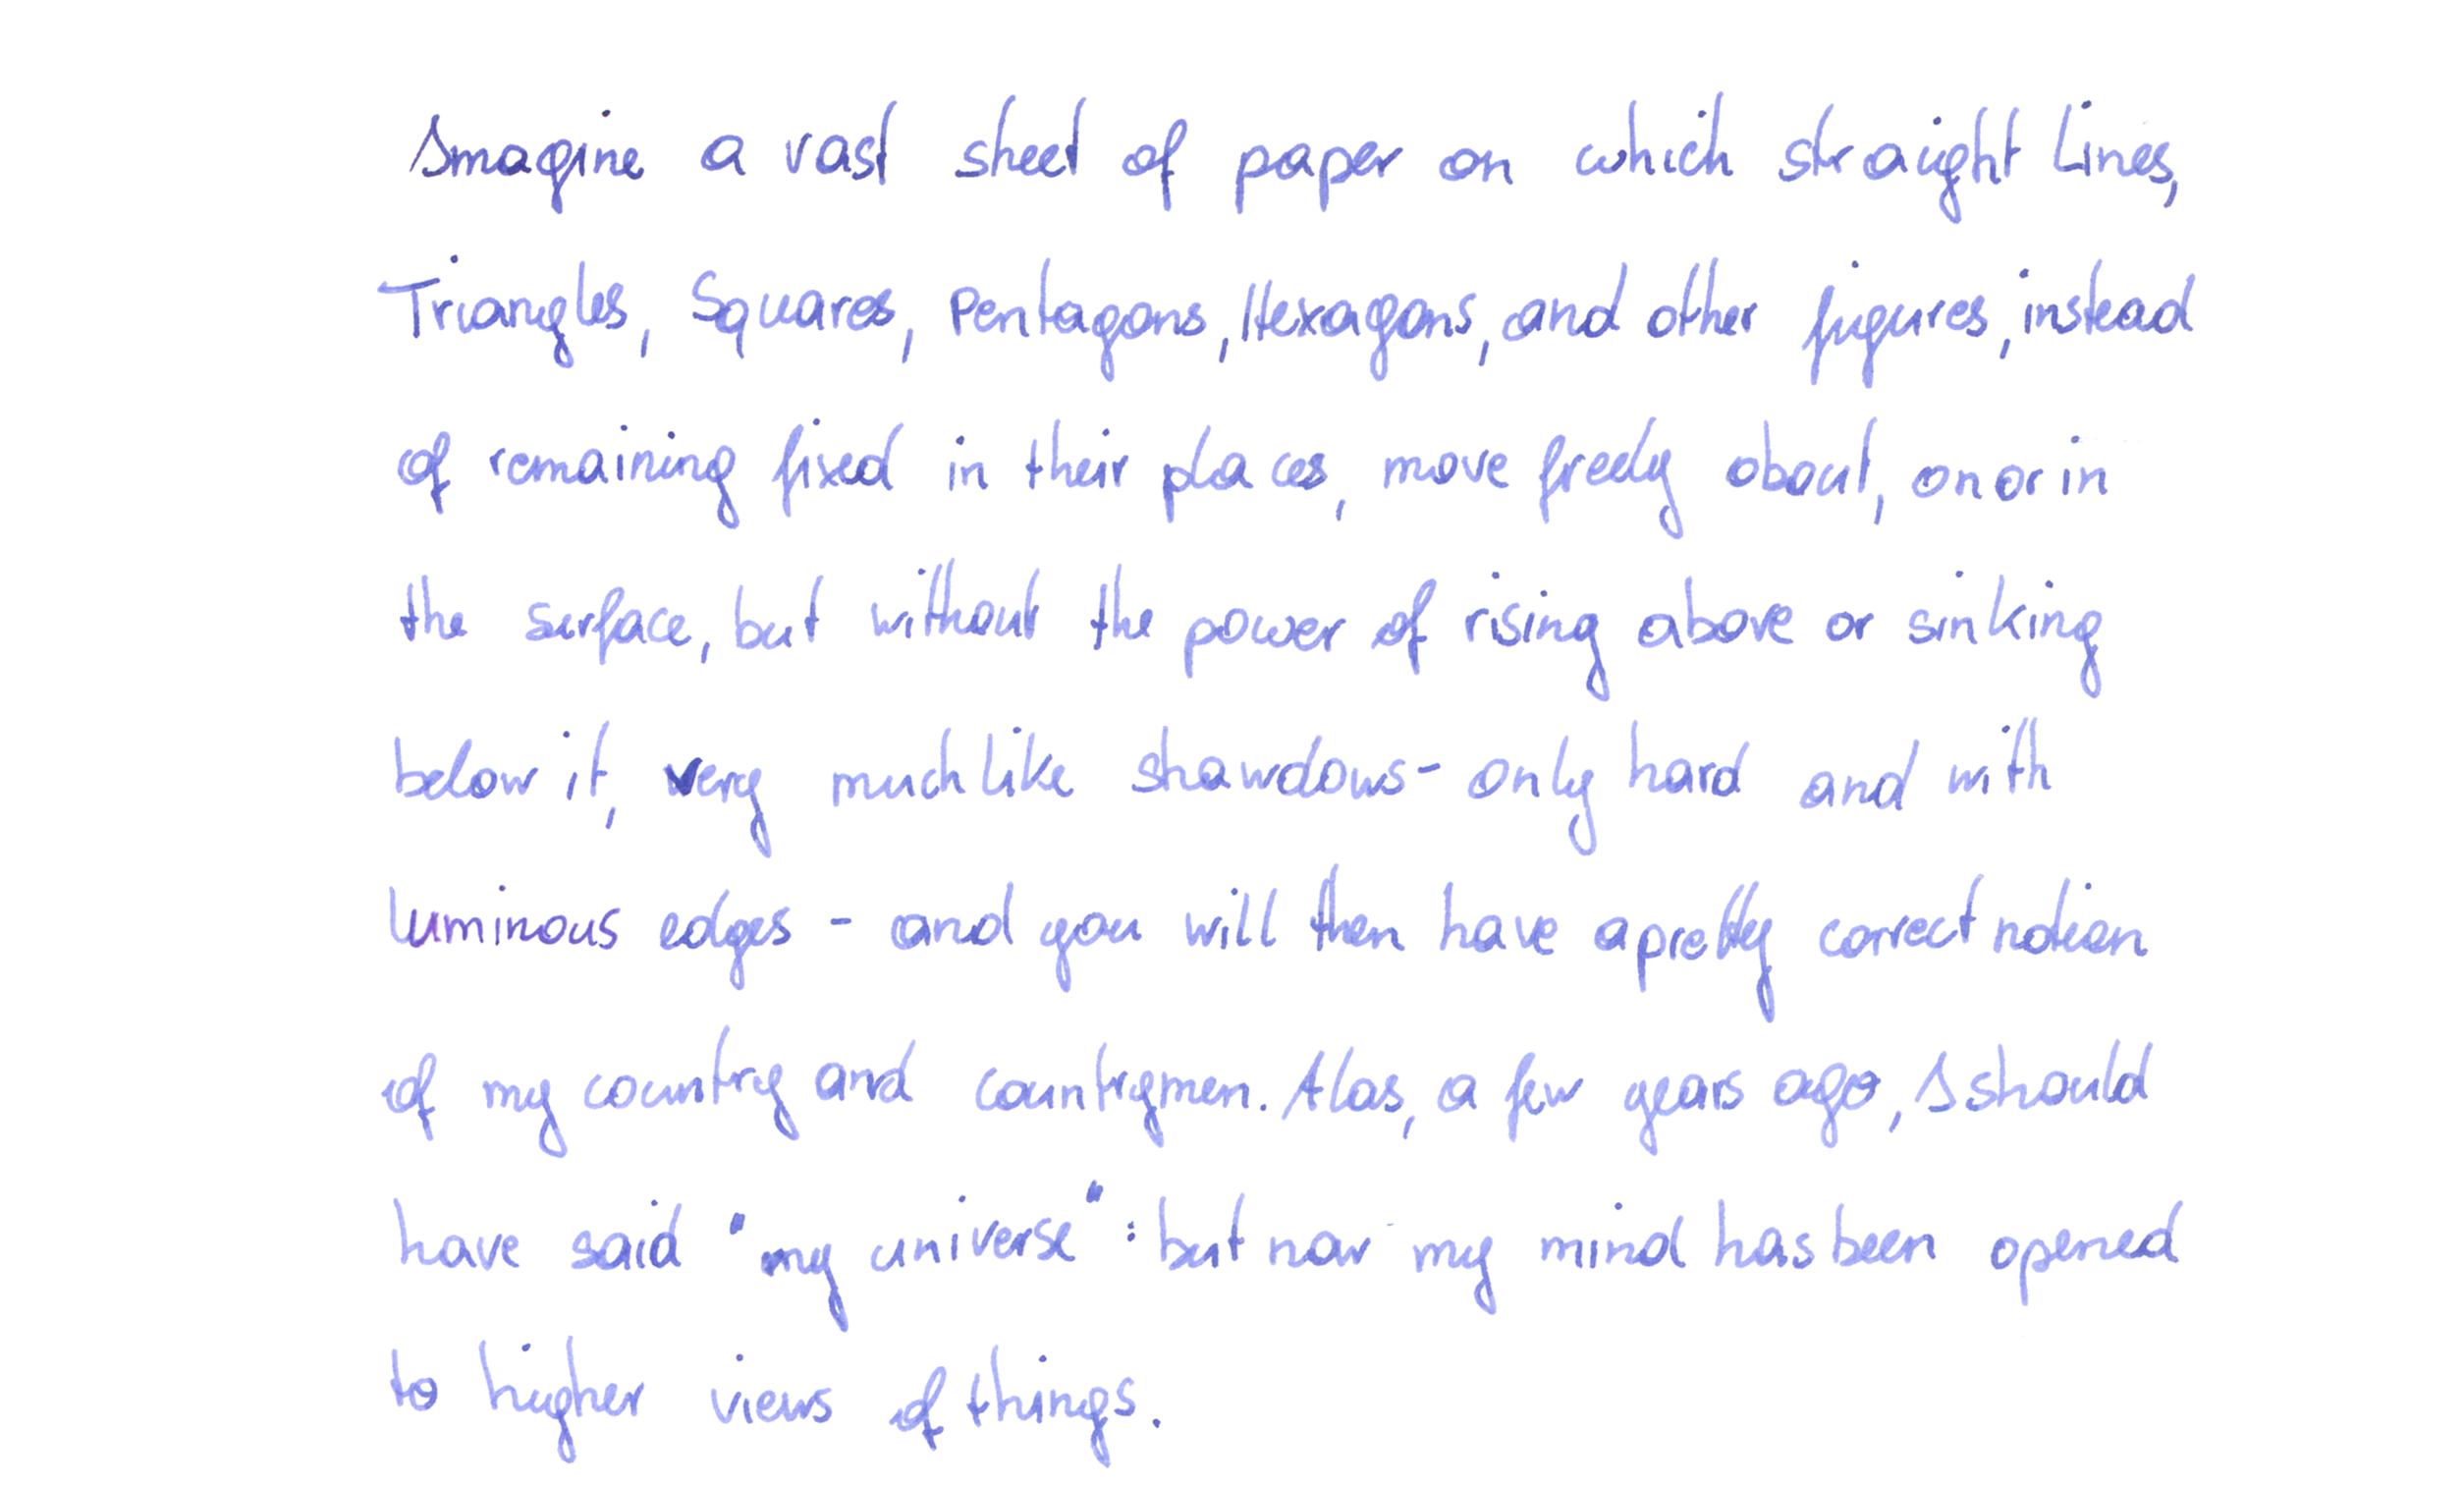 Imagine a vast sheet of paper on which straight Lines,
Triangles, Squares, Pentagons, Hexagons, and other figures, instead
of remaining fixed in their places, move freely about, on or in
the surface, but without the power of rising above or sinking
below it, very much like shawdows - only hard and with
luminous edges - and you will then have a pretty correct notion
of my country and countrymen. Alas, a few years ago, I should
have said "my universe": but now my mind has been opened
to higher views of things.